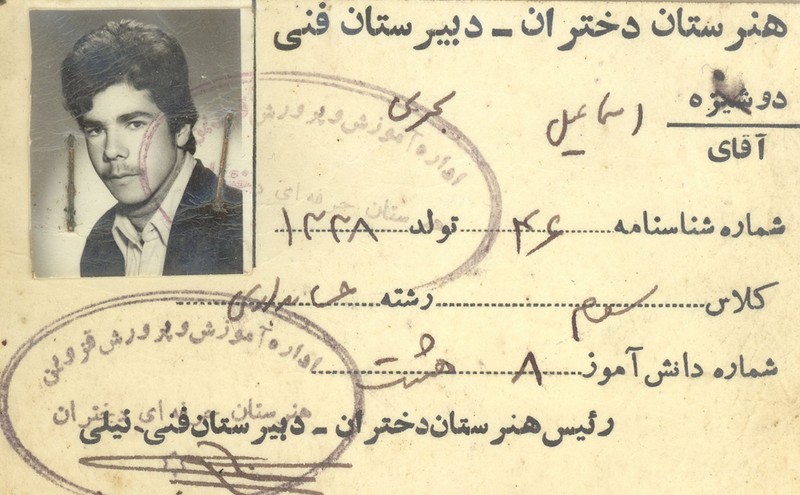 هنرستان دختران - دبیرستان فنی
دوشیزه
آقای
اسماعیل
شماره شناسنامه ۴۶ تولد ۱۳۳۸
کلاس سوم رشته حسابداری
شماره دانش آموز ۸ هشت
رئیس هنرستان دختران - دبیرستان فنی نیلی
اداره آموزش و پرورش
اداره آموزش و پرورش قزوین
هنرستان حرفه ای دختران